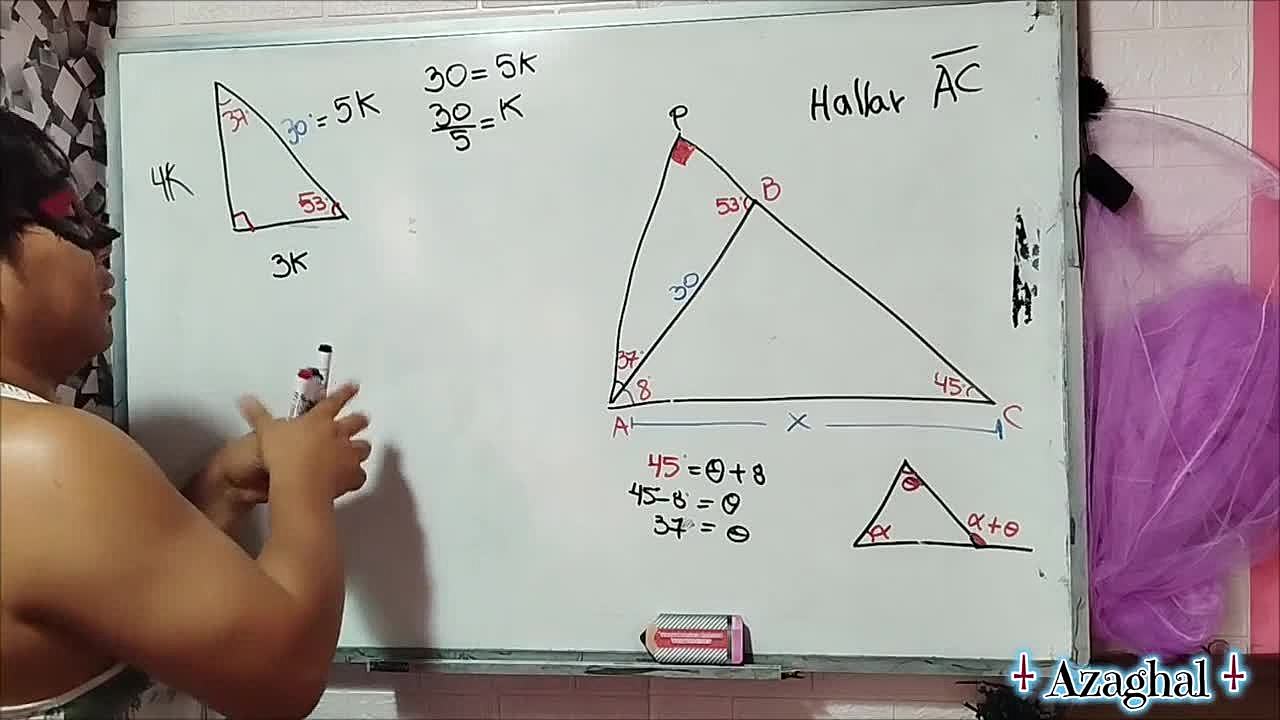 37°
30° = 5K
4K
53
3K
30 = 5K
30/5 = K
Hallar AC
P
53°
B
30
37°
8°
45°
A
x
C
45° = θ + 8
45-8 = θ
37° = θ
θ
α
α+θ
Azaghal